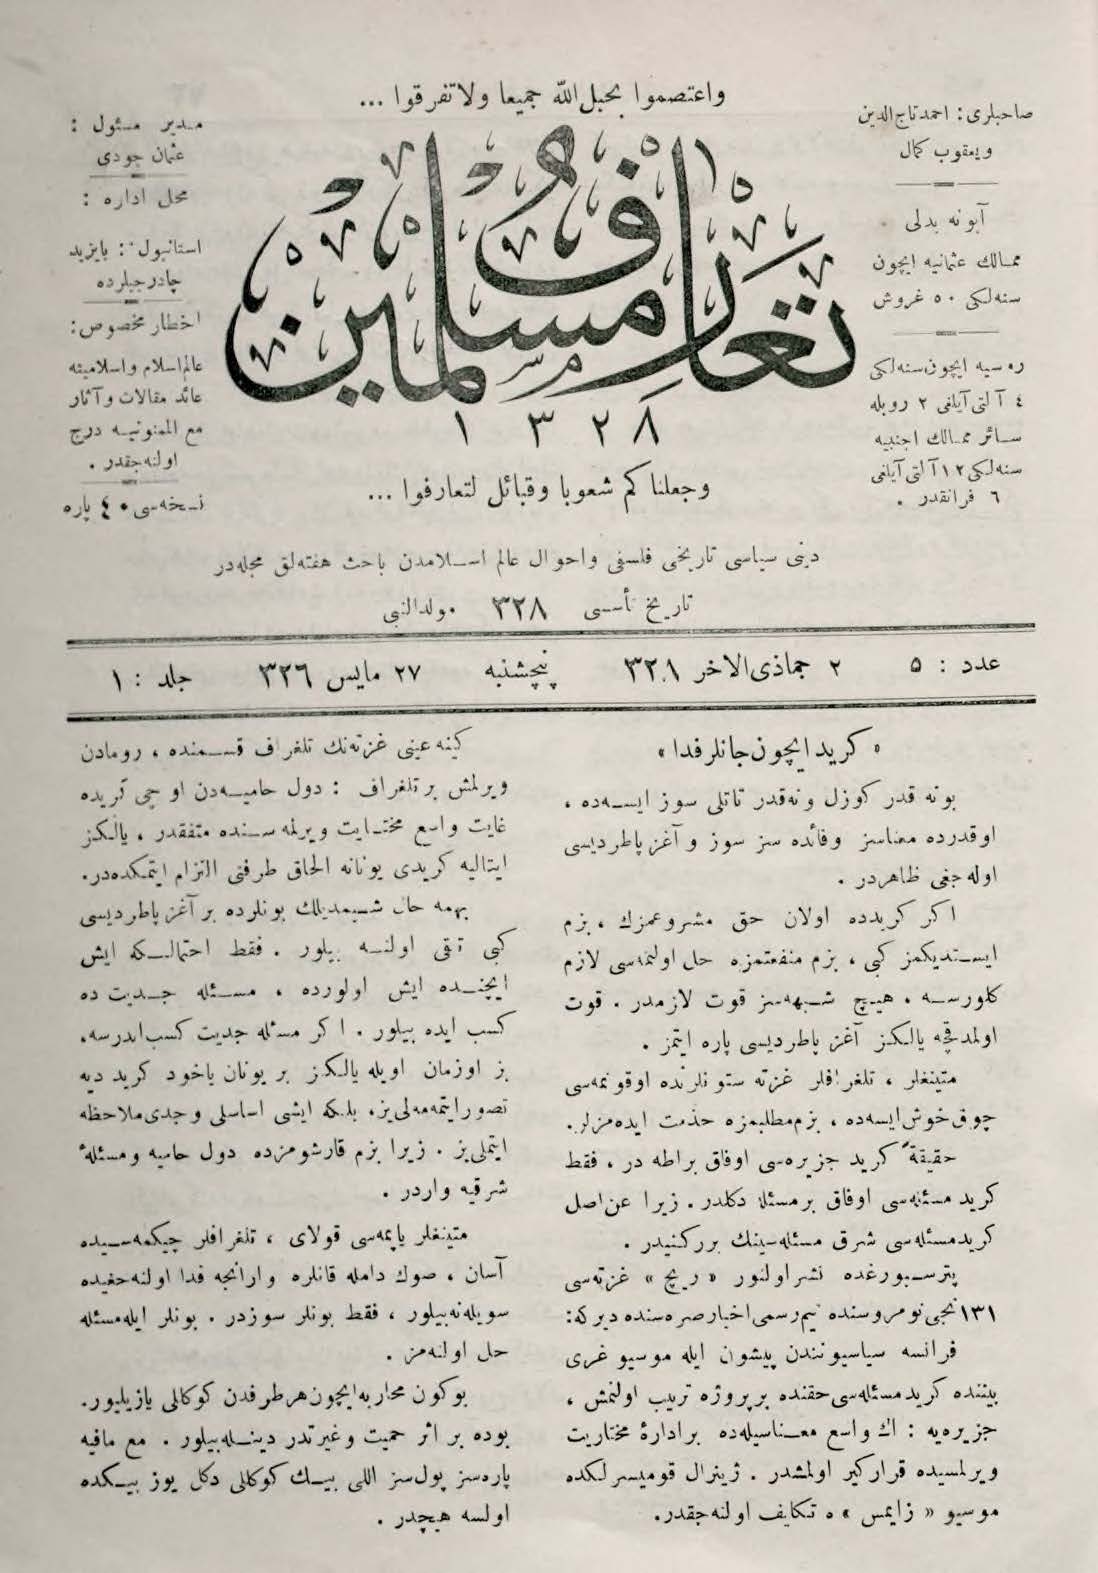 واعتصموا بحبل الله جميعا ولا تفرقوا ...
صاحبلری : احمد تاج‌الدین
ویعقوب کمال
آبونه بدلی
ممالك عثمانیه ایچون
سنه‌لكی ٥٠ غروش
روسیه ایچون سنه‌لكی
٤ آلتی آیلغی ٢ روبله
سائر ممالك اجنبیه
سنه‌لكی ١٢ آلتی آیلغی
٦ فرانقدر .
مدیر مسئول :
عثمان جودی
محل اداره :
استانبول : بایزید
چادرجیلرده
اخطار مخصوص :
عالم اسلام واسلامیته
عائد مقالات وآثار
مع الممنونیه درج
اولنه‌جقدر .
نسخه‌سی ٤٠ پاره
تعارف مسلمین
١٣٢٨
وجعلناكم شعوبا وقبائل لتعارفوا ...
دینی سیاسی تاریخی فلسفی واحوال عالم اسلامدن باحث هفته‌لق مجله‌در
تاریخ تأسسی ٣٢٨ مولدالنبی
عدد : ٥ ٢ جماذی‌الاخر ٣٢٨ پنچشنبه ٢٧ مایس ٣٢٦ جلد : ١
« كرید ایچون جانلر فدا »
بونه قدر كوزل ونه‌قدر تاتلی سوز ایسه‌ده ،
اوقدرده معناسز وفائده سز سوز وآغز پاطردیسی
اوله‌جغی ظاهردر .
اكر كریدده اولان حق مشروعمزك ، بزم
ایستدیكمز كبی ، بزم منفعتمزه حل اولنمه‌سی لازم
كلورسه ، هیچ شبهه‌سز قوت لازمدر . قوت
اولمدقچه یالكز آغز پاطردیسی پاره ایتمز .
متینغلر ، تلغرافلر غزته ستونلرنده اوقونمه‌سی
چوق خوش ایسه‌ده ، بزم مطلبمزه خذمت ایده‌مزلر.
حقیقةً كرید جزیره‌سی اوفاق براطه در ، فقط
كرید مسئله‌سی اوفاق برمسئله دكلدر . زیرا عن‌اصل
كریدمسئله‌سی شرق مسئله‌سینك برركنیدر .
پترسبورغده نشر اولنور « ریچ » غزته‌سی
١٣١نجی نومروسنده نیم‌رسمی اخبار صره‌سنده دیركه:
فرانسه سیاسیونندن پیشون ایله موسیو غری
بیننده كریدمسئله‌سی حقنده برپروژه ترتیب اولنمش ،
جزیره‌یه : اك واسع معناسیله‌ده برادارهٔ مختاریت
ویرلمسیده قرارکیر اولمشدر . ژینرال قومیسرلكده
موسیو « زایمس » ه تكلیف اولنه‌جقدر.
كینه عینی غزته‌نك تلغراف قسمنده ، رومادن
ویرلمش برتلغراف : دول حامیه‌دن اوچی كریده
غایت واسع مختاریت ویرلمه سنده متفقدر ، یالكز
ایتالیه كریدی یونانه الحاق طرفنی التزام ایتمكده‌در.
بهمه حال شیمدیلك بونلرده بر آغز پاطردیسی
كبی تلقی اولنسه بیلور . فقط احتمالكه ایش
ایچنده ایش اولورده ، مسئله جدیت ده
كسب ایده بیلور . اكر مسئله جدیت كسب‌ایدرسه،
بز اوزمان اویله یالكز بر یونان یاخود كرید دیه
تصورایتمه‌ملی‌یز، بلكه ایشی اساسلی وجدی‌ملاحظه
ایتملی‌یز . زیرا بزم قارشومزده دول حامیه ومسئلهٔ
شرقیه واردر .
متینغلر یاپمه‌سی قولای ، تلغرافلر چیكمه‌سیده
آسان ، صوك دامله قانلره وارانجه فدا اولنه‌جغیده
سویله‌نه‌بیلور ، فقط بونلر سوزدر . بونلر ایله‌مسئله
حل اولنه‌مز .
بوكون محاربه‌ایچون هرطرفدن كوكللی یازیلیور.
بوده بر اثر حمیت وغیرتدر دینله‌بیلور . مع مافیه
پاره‌سز پول‌سز اللی بیك كوكللی دكل یوز بیكده
اولسه هیچدر .